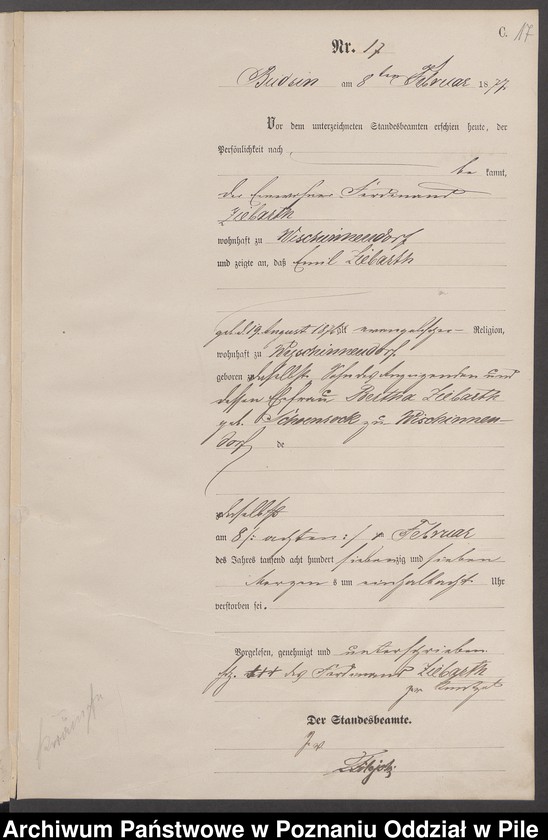 C. 17
Nr. 17
Budsin am 8ten Februar 1877.
Vor dem unterzeichneten Standesbeamten erschien heute, der
Persönlichkeit nach,
be kannt,
der Einwohner Ferdinand
Ziebarth
wohnhaft zu Wischinnendorf
und zeigte an, daß Emil Ziebarth
geb. d. 19 August 1876 alt evangelischer Religion,
wohnhaft zu Wischinnendorf
geboren zu daselbst, Sohn des Anzeigenden und
dessen Ehefrau Bertha Ziebarth
geb. zu Wischinnen-
dorf de
zu daselbst
am 8 /: achten :/ Februar
des Jahres tausend acht hundert siebenzig und sieben
Morgen s um einhalbacht Uhr
verstorben sei.
Vorgelesen, genehmigt und unterschrieben
+++ des Ferdinand Ziebarth
Der Standesbeamte.
Archiwum Państwowe w Poznaniu Oddział w Pile